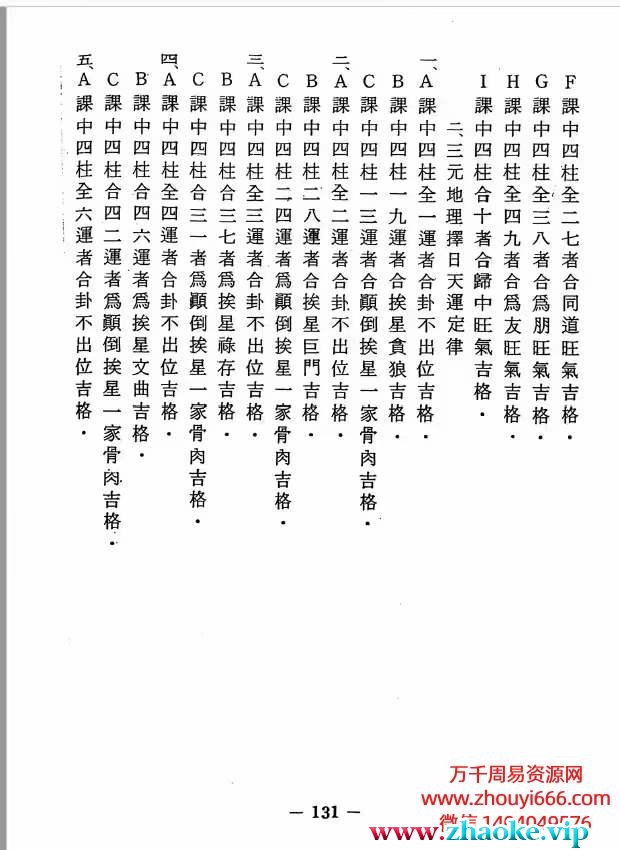 F課中四柱全二七者合同道旺氣吉格．
G課中四柱全三八者合爲朋旺氣吉格．
H課中四柱全四九者合爲友旺氣吉格．
I課中四柱合十者合歸中旺氣吉格．
二、三元地理擇日天運定律
一、A課中四柱全一運者合卦不出位吉格．
B課中四柱一九運者合挨星貪狼吉格．
C課中四柱一三運者爲顚倒挨星一家骨肉吉格．
二、A課中四柱全二運者合卦不出位吉格．
B課中四柱二八運者合挨星巨門吉格．
C課中四柱二四運者爲顚倒挨星一家骨肉吉格．
三、A課中四柱全三運者合卦不出位吉格．
B課中四柱合三七者爲挨星祿存吉格．
C課中四柱合三一者爲顚倒挨星一家骨肉吉格．
四、A課中四柱全四運者合卦不出位吉格．
B課中四柱合四六運者爲挨星文曲吉格．
C課中四柱合四二運者爲顚倒挨星一家骨肉吉格．
五、A課中四柱全六運者合卦不出位吉格．
— 131 —
万千周易资源网
www.zhouyi666.com
微信1494049576
www.zhaoke.vip